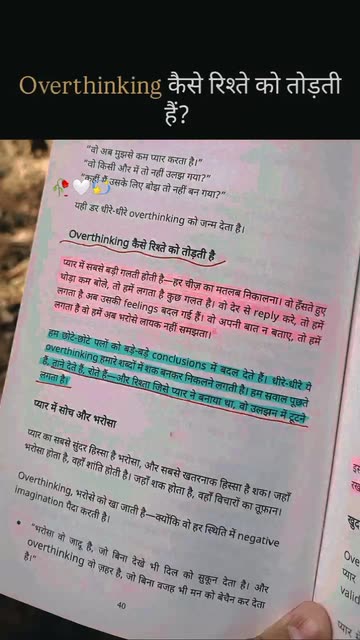 Overthinking कैसे रिश्ते को तोड़ती
हैं?
"वो अब मुझसे कम प्यार करता है।"
"वो किसी और में तो नहीं उलझ गया?"
"कहीं मैं उसके लिए बोझ तो नहीं बन गया?"
यही डर धीरे-धीरे overthinking को जन्म देता है।
Overthinking कैसे रिश्ते को तोड़ती है
प्यार में सबसे बड़ी गलती होती है—हर चीज़ का मतलब निकालना। वो हँसते हुए
थोड़ा कम बोले, तो हमें लगता है कुछ गलत है। वो देर से reply करे, तो हमें
लगता है अब उसकी feelings बदल गई हैं। वो अपनी बात न बताए, तो हमें
लगता है वो हमें अब भरोसे लायक नहीं समझता।
हम छोटे-छोटे पलों को बड़े-बड़े conclusions में बदल देते हैं। धीरे-धीरे ये
overthinking हमारे शब्दों में शक बनकर निकलने लगती है। हम सवाल पूछते
है, ताने देते है, रोते हैं—और रिश्ता जिसे प्यार ने बनाया था, वो उलझन में टूटने
लगता है।
प्यार में सोच और भरोसा
प्यार का सबसे सुंदर हिस्सा है भरोसा, और सबसे खतरनाक हिस्सा है शक। जहाँ
भरोसा होता है, वहाँ शांति होती है। जहाँ शक होता है, वहाँ विचारों का तूफ़ान।
Overthinking, भरोसे को खा जाती है—क्योंकि वो हर स्थिति में negative
imagination पैदा करती है।
• "भरोसा वो जादू है, जो बिना देखे भी दिल को सुकून देता है। और
overthinking वो ज़हर है, जो बिना वजह भी मन को बेचैन कर देता
है।"
40